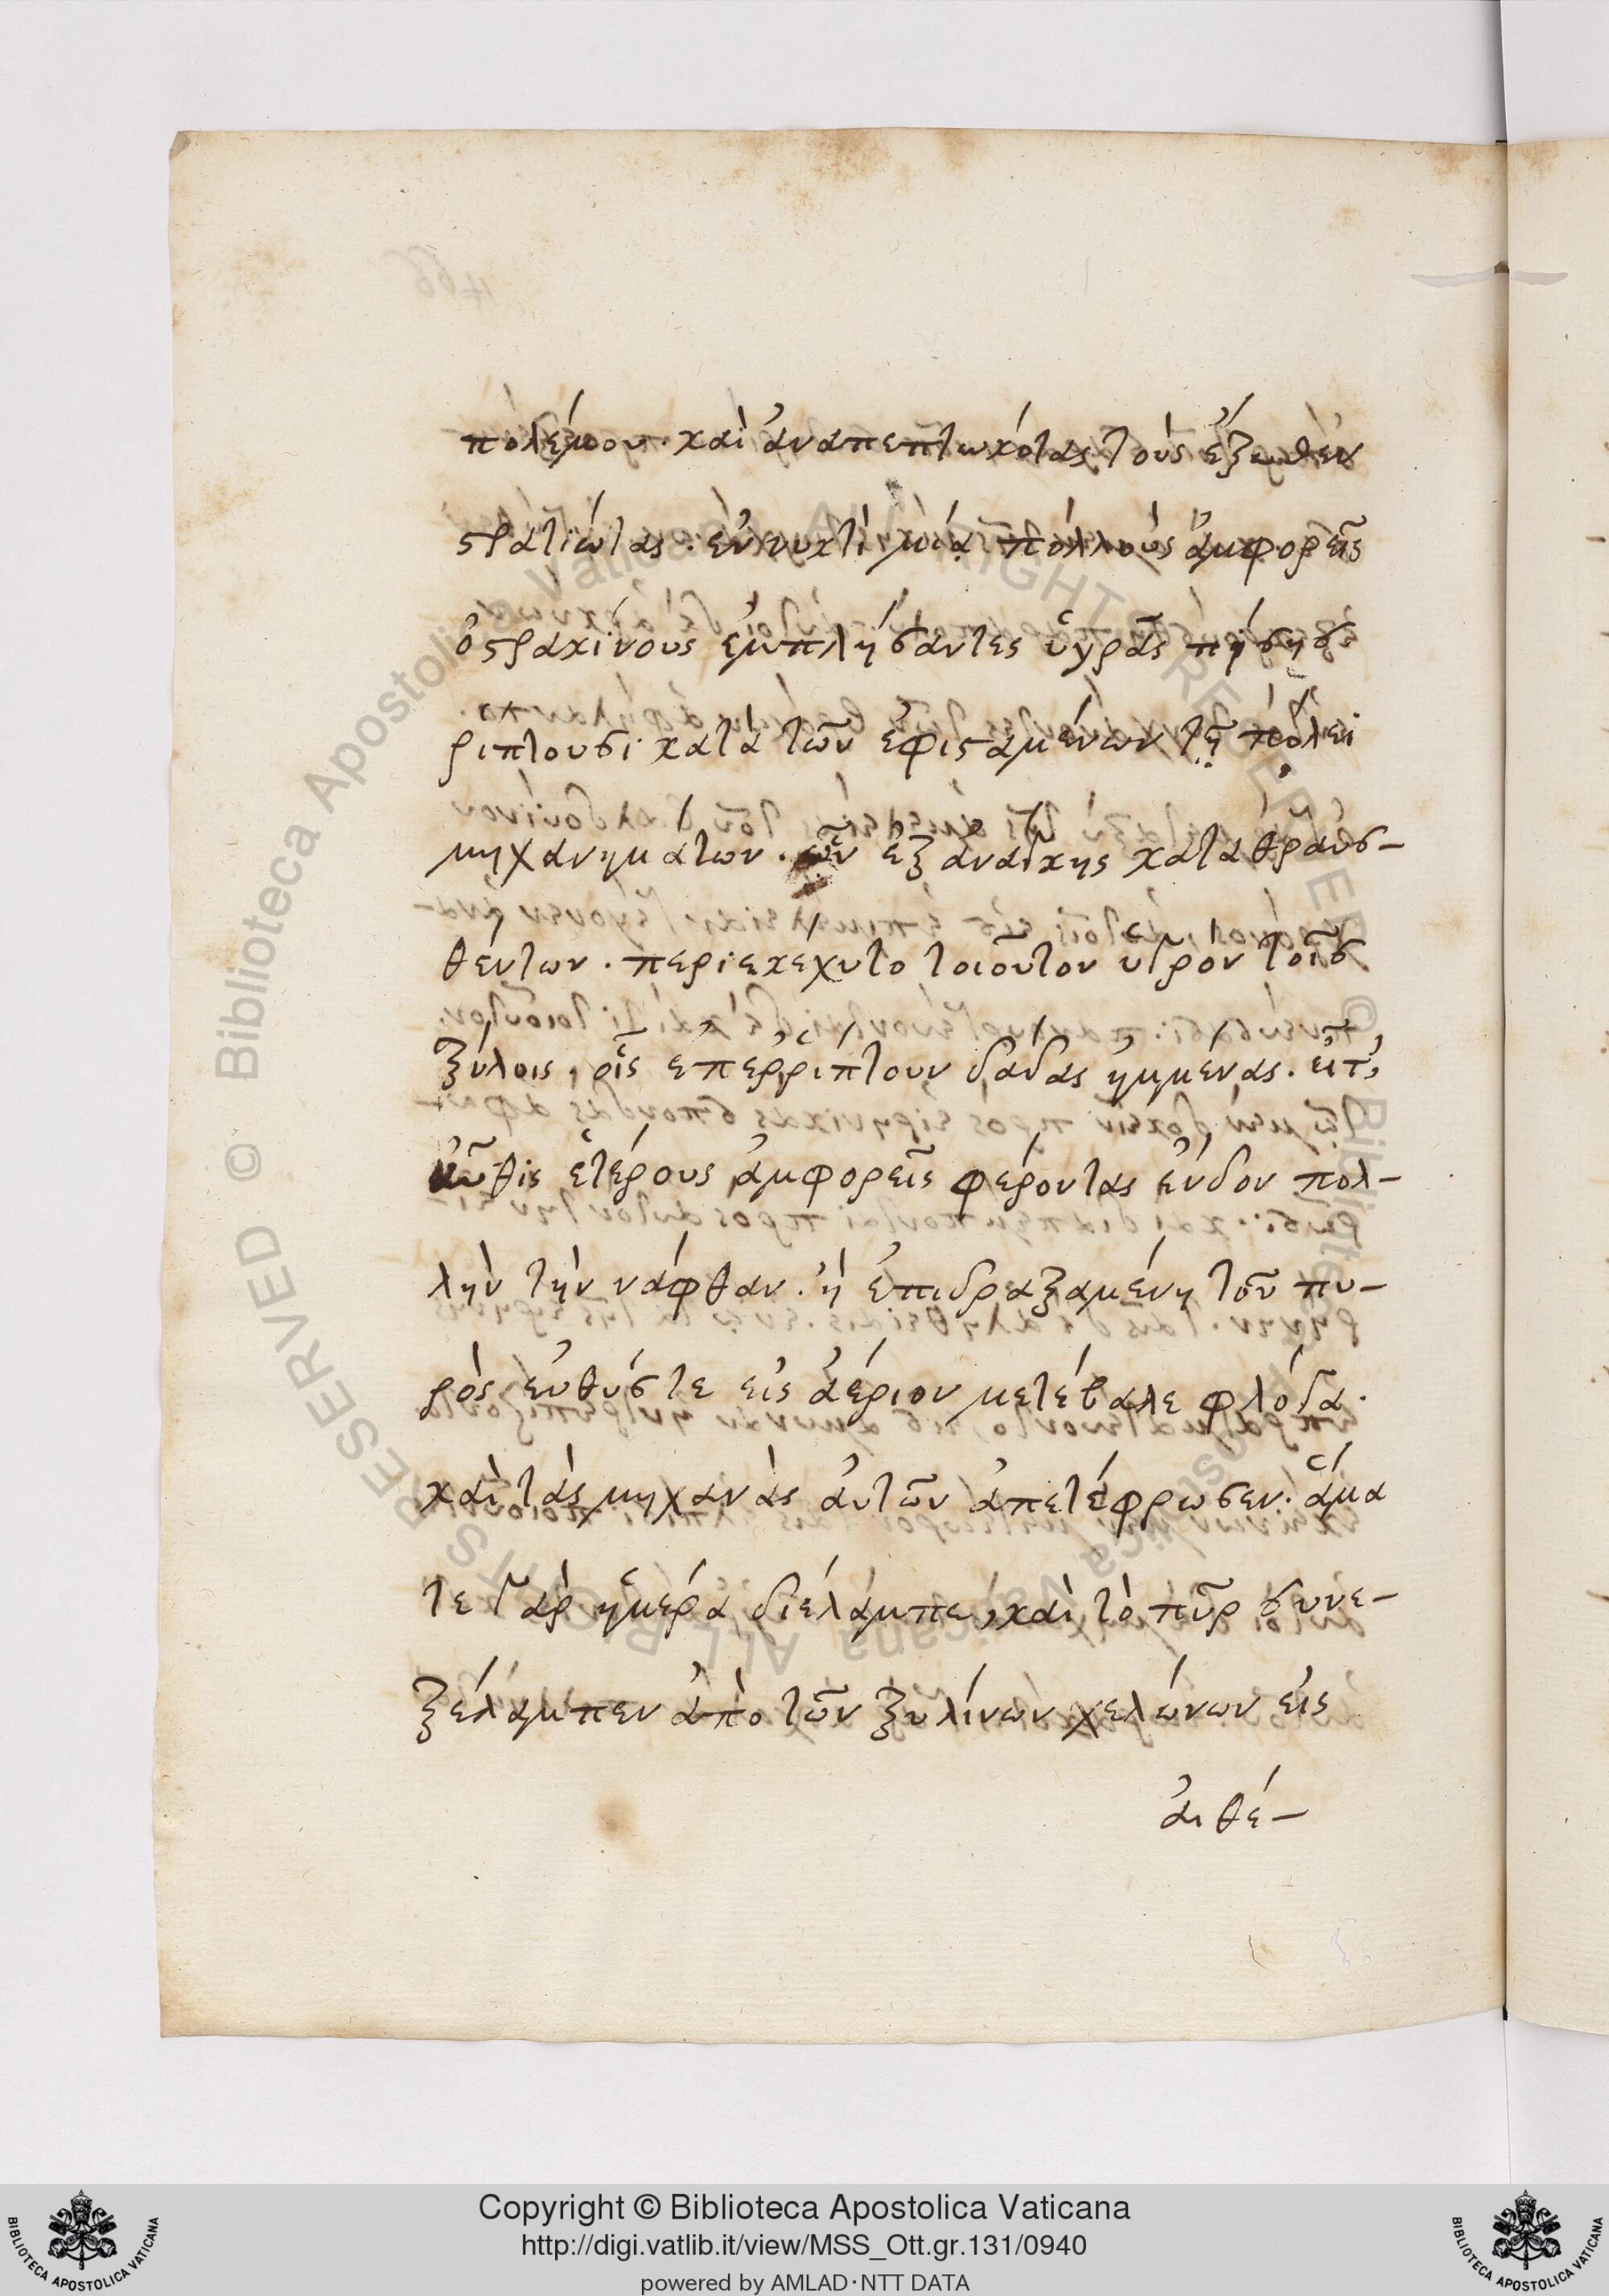 πολέμου· καὶ ἀναπεπτωκότας τοὺς ἔξωθεν
στρατιώτας· ἐν νυκτὶ μιᾷ πολλοὺς ἀμφορεῖς
ὀστρακίνους ἐμπλήσαντες ὑγρᾶς πήσης
ρίπτουσι κατὰ τῶν ἐφισταμένων τῇ πόλει
μηχανημάτων· ὧν ἐξ ἀνάγκης καταθραυσ-
θέντων· περιεκέχυτο τοιοῦτον ὑγρὸν τοῖς
ξύλοις, οἷς ἐπερρίπτουν δᾷδας ἡμμένας. εἶτ'
αὖθις ἑτέρους ἀμφορεῖς φέροντας ἔνδον πολ-
λὴν τὴν νάφθαν· ἡ ἐπιδραξαμένη τοῦ πυ-
ρὸς εὐθύς τε εἰς ἀέριον μετέβαλε φλόγα·
καὶ τὰς μηχανὰς αὐτῶν ἀπετέφρωσεν· ἅμα
τε γὰρ ἡμέρα διέλαμπε, καὶ τὸ πῦρ συνε-
ξέλαμπεν ἀπὸ τῶν ξυλίνων χελώνων εἰς
αἰθέ-
Copyright © Biblioteca Apostolica Vaticana
http://digi.vatlib.it/view/MSS_Ott.gr.131/0940
powered by AMLAD·NTT DATA
BIBLIOTECA APOSTOLICA VATICANA
BIBLIOTECA APOSTOLICA VATICANA